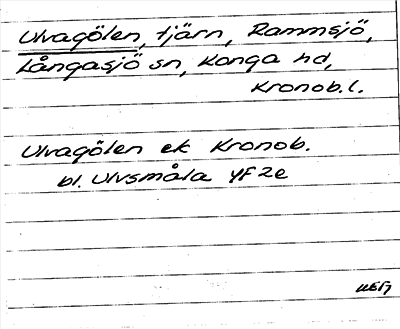 Ulvagölen, tjärn, Rammsjö,
Långasjö sn, Konga hd,
Kronob.l.
Ulvagölen ek Kronob.
bl. Ulvsmåla 4F2e